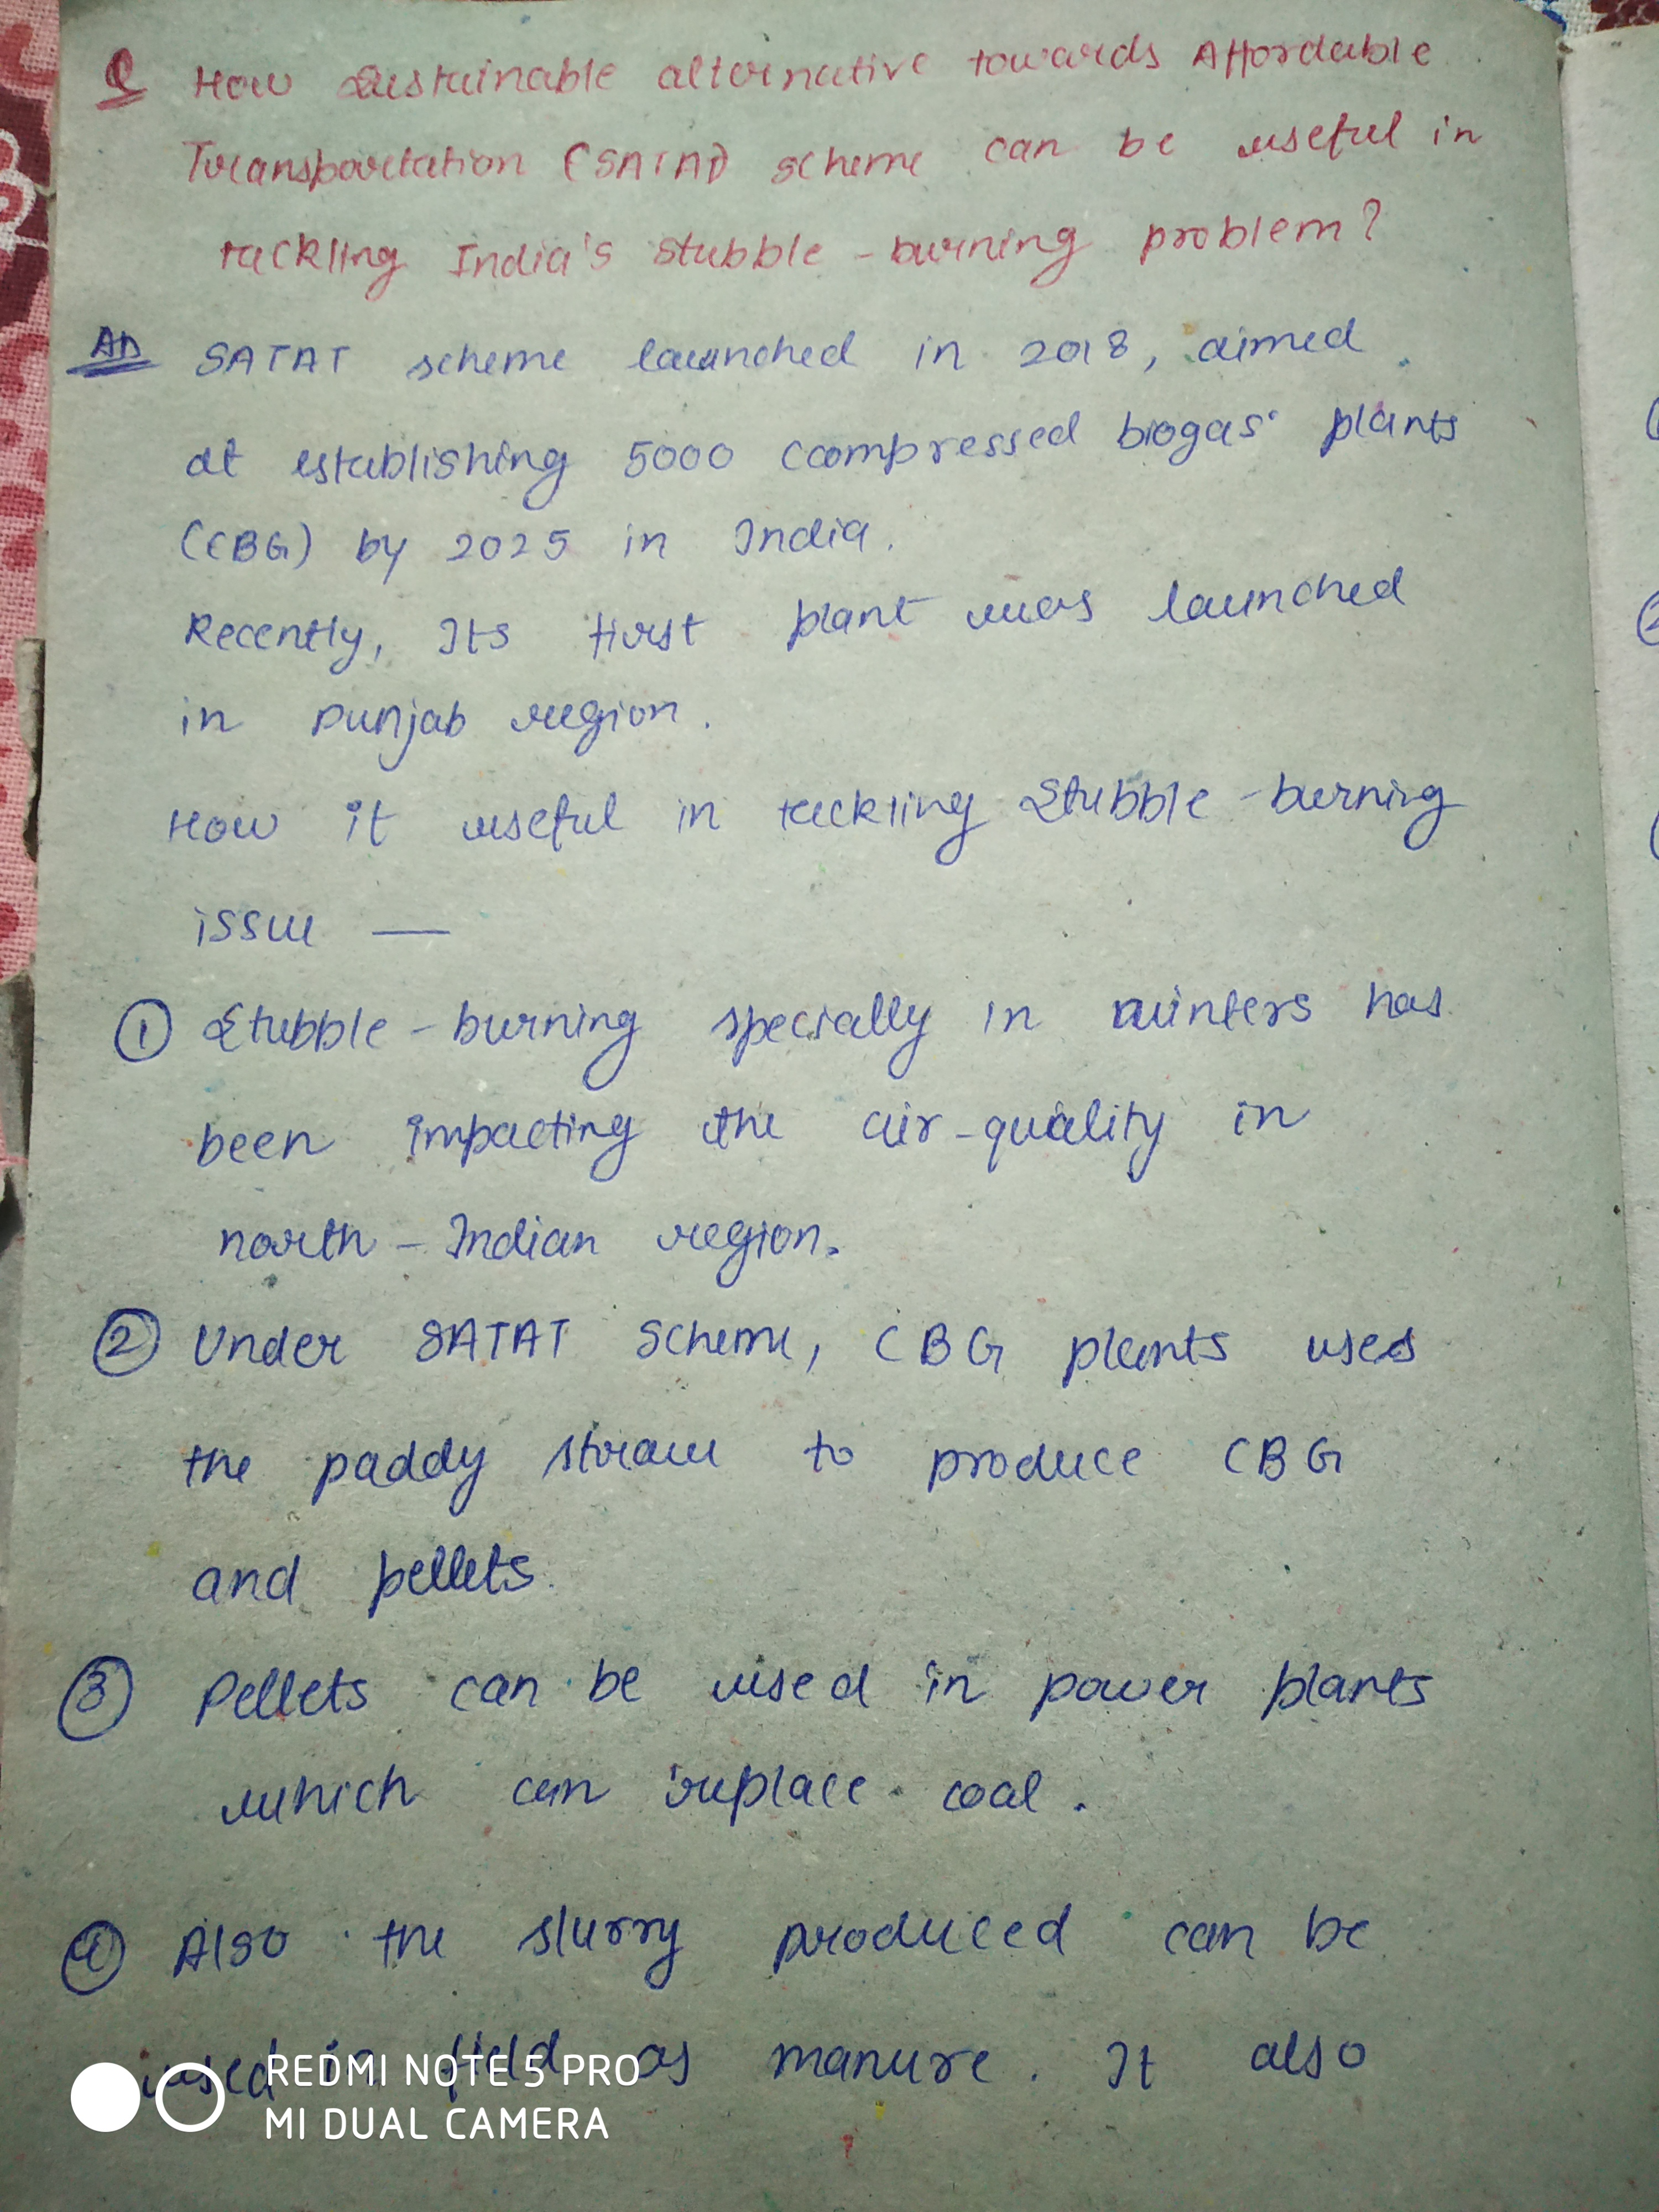 Q How Sustainable alternative towards Affordable
Transportation (SATAT) scheme can be useful in
tackling India's stubble-burning problem?
An SATAT scheme launched in 2018, aimed
at establishing 5000 ccompressed biogas plants
(CBG) by 2025 in India.
Recently, Its first plant was launched
in Punjab region.
How it useful in tackling Stubble-burning
issue —
① Stubble-burning specially in winters has
been impacting the air-quality in
north-Indian region.
② Under SATAT Scheme, CBG plants uses
the paddy straw to produce CBG
and pellets.
③ Pellets can be used in power plants
which can replace coal.
④ Also the slurry produced can be
used in field as manure. It also
REDMI NOTE 5 PRO
MI DUAL CAMERA